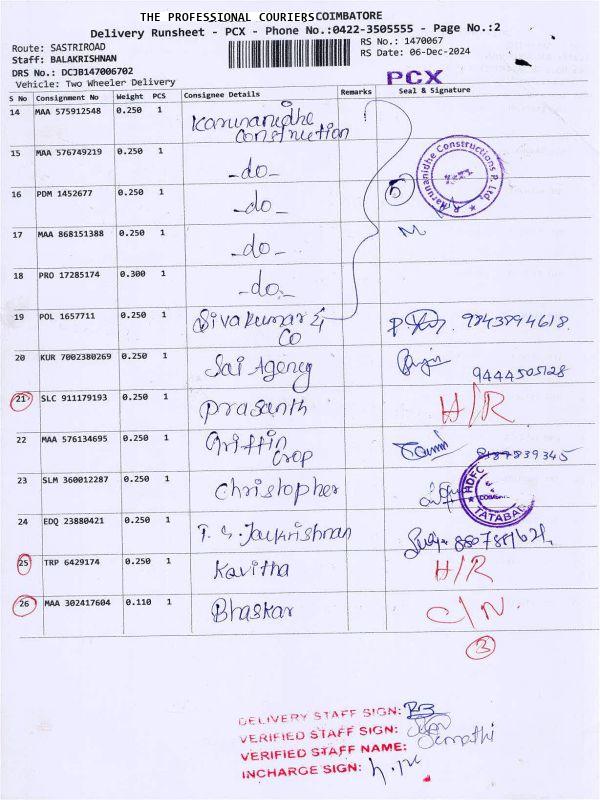 THE PROFESSIONAL COURIERS COIMBATORE
Delivery Runsheet - PCX - Phone No.:0422-3505555 - Page No.:2
Route: SASTRIROAD
RS No.: 1470067
Staff: BALAKRISHNAN
RS Date: 06-Dec-2024
DRS No.: DCJB147006702
Vehicle: Two Wheeler Delivery
PCX
S No Consignment No Weight PCS Consignee Details Remarks Seal & Signature
14 MAA 575912548 0.250 1 Karunanidhe
Construction
15 MAA 576749219 0.250 1 -do-
16 PDM 1452677 0.250 1 -do- 5
17 MAA 868151388 0.250 1 -do-
18 PRO 17285174 0.300 1 -do-
19 POL 1657711 0.250 1 Sivakumar &
Co 9843894618.
20 KUR 7002380269 0.250 1 Sai Agency 9444505128
21 SLC 911179193 0.250 1 Prasanth H/R
22 MAA 576134695 0.250 1 Griffin
Crop
23 SLM 360012287 0.250 1 Christopher HDFC
TATABAD
24 EDQ 23880421 0.250 1 T. S. Jaukrishnan
25 TRP 6429174 0.250 1 Kavitha H/R
26 MAA 302417604 0.110 1 Bhaskar C/N.
3
DELIVERY STAFF SIGN:
VERIFIED STAFF SIGN:
VERIFIED STAFF NAME:
INCHARGE SIGN: